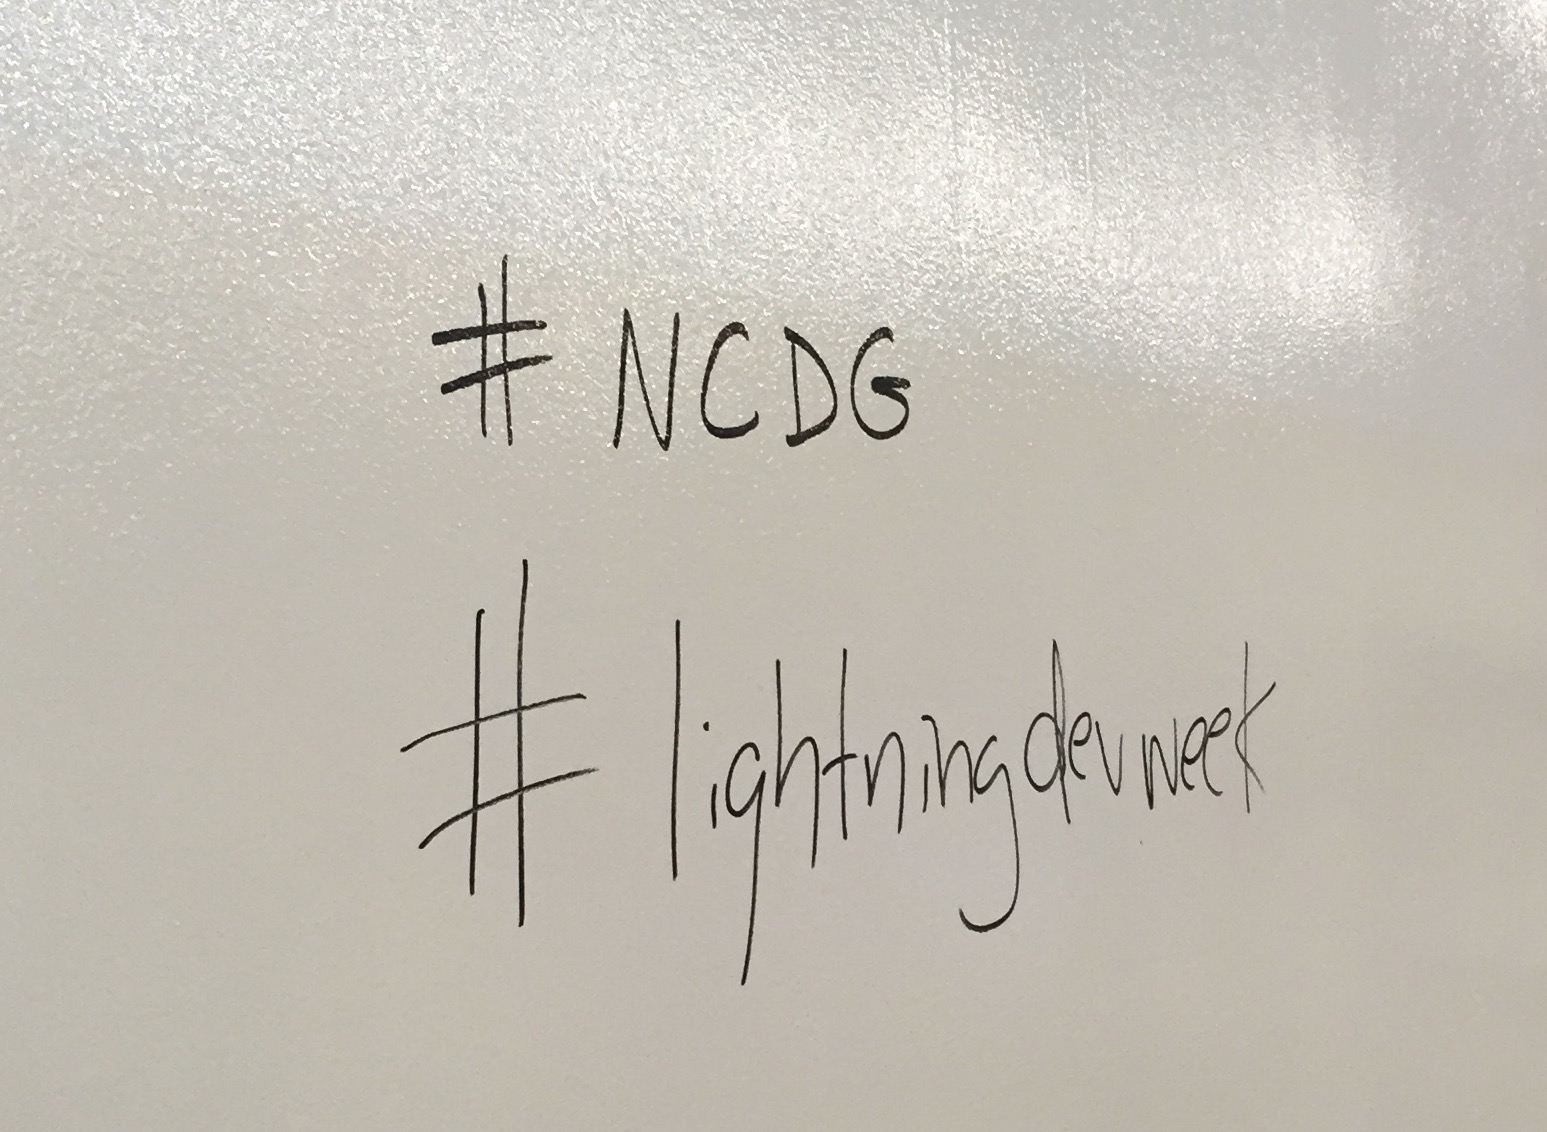 # NCDG
# lightningdevweek